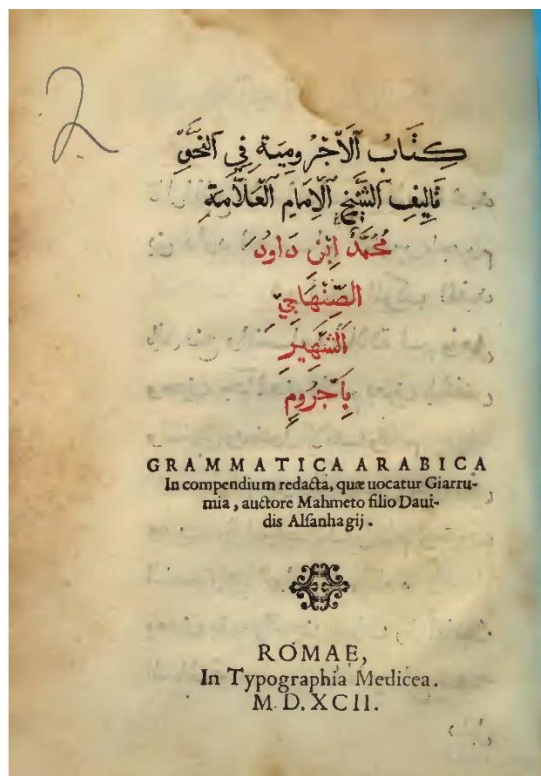 2
كِتَابُ ٱلْآجُرُومِيَةِ فِي ٱلنَّحْوِ
تَالِيفِ ٱلشَّيْخِ ٱلْاِمَامِ ٱلْعَلَّامَةِ
مُحَمَّدُ اِبْنِ دَاودَ
الصِّنْهَاجِيّ
اَلشَّهِيرِ
بِاَجَرُومٍ
GRAMMATICA ARABICA
In compendium redacta, quæ uocatur Giarru-
mia, auctore Mahmeto filio Daui-
dis Alsanhagij.
ROMAE,
In Typographia Medicea.
M D. XCII.